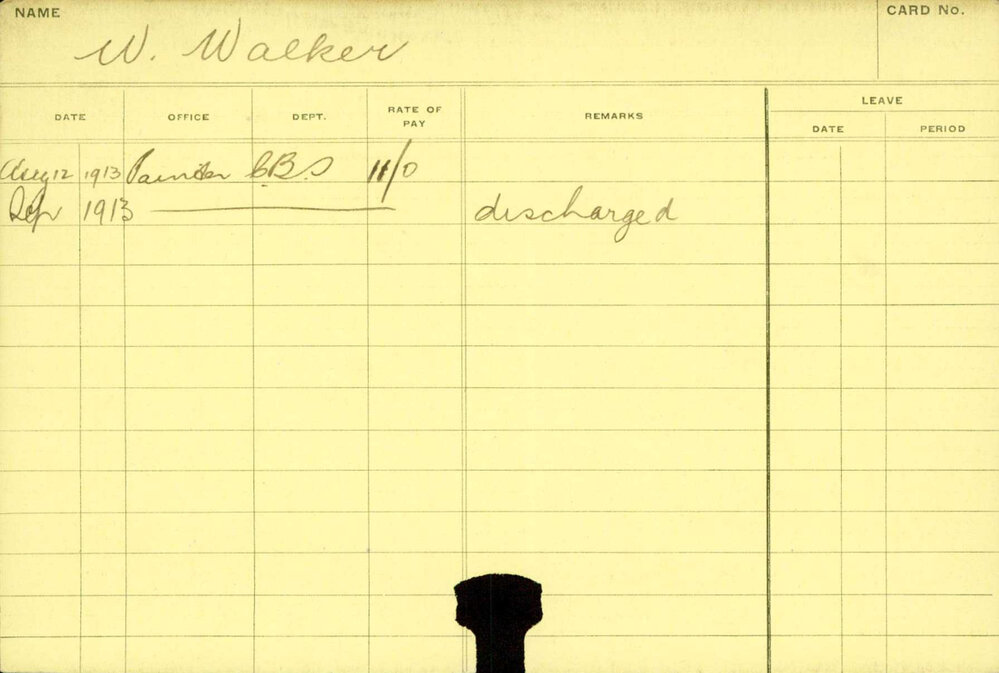 NAME
CARD No.
W. Walker
DATE OFFICE DEPT. RATE OF PAY REMARKS LEAVE
DATE PERIOD
Aug 12 1913 Painter C.B.S 11/0
Sep 1913 discharged